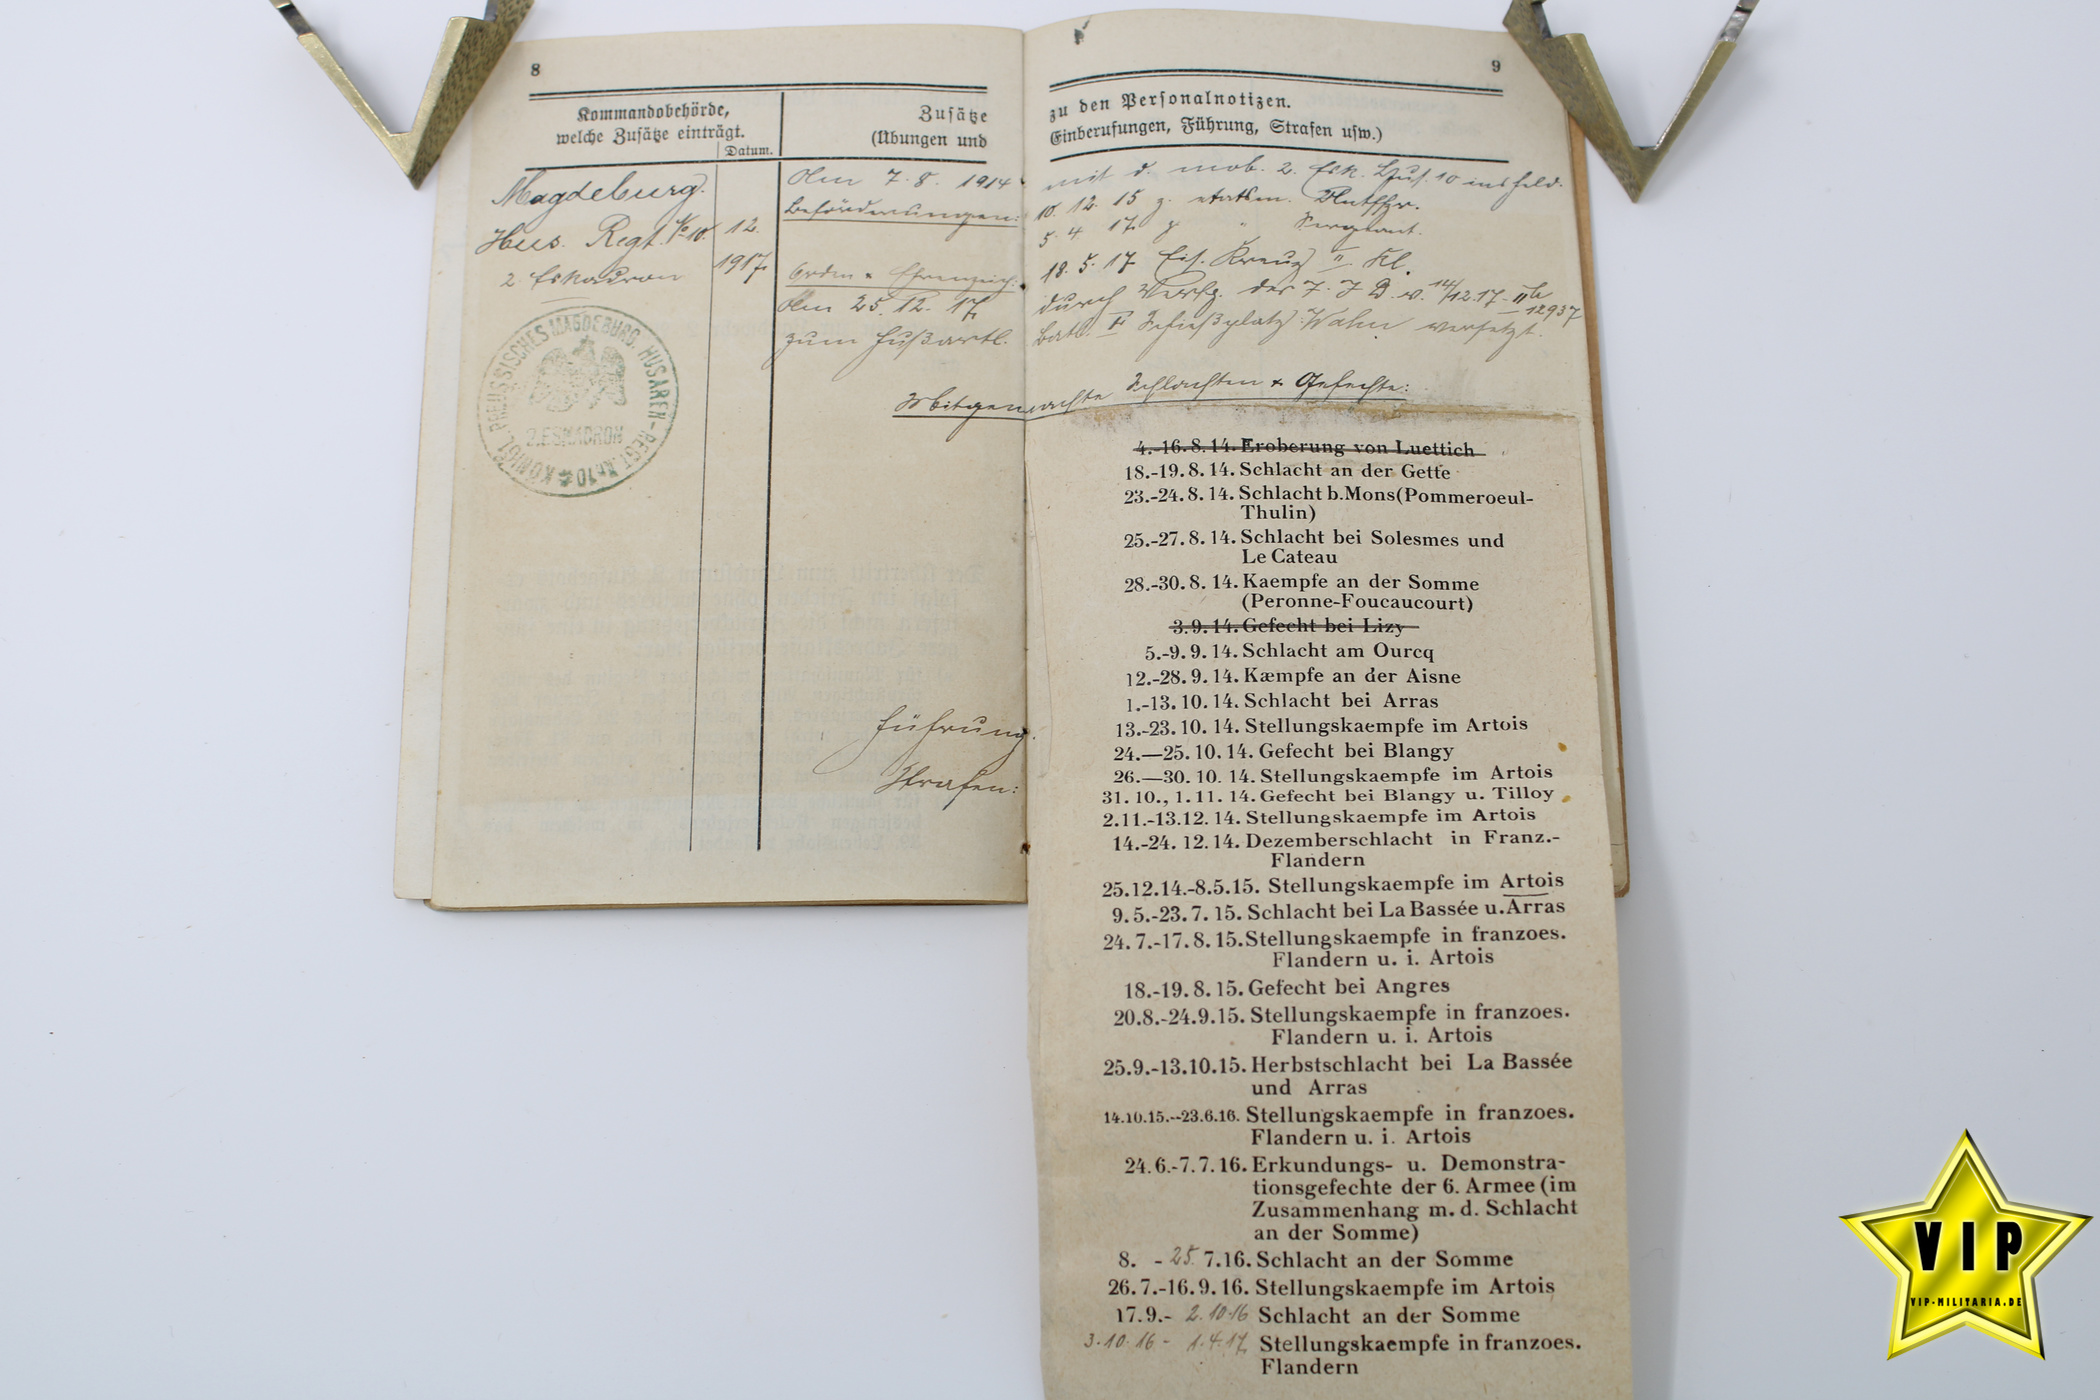 8
Kommandobehörde,
welche Zusätze einträgt.
Datum.
Zusätze
(Übungen und
Magdeburg.
Hus. Regt. No 10.
12.
1917.
2. Eskadron
KÖNIGL. PREUSSISCHES MAGDEBURG. HUSAREN-REGT. Nr. 10
2. ESKADRON
Am 7. 8. 1914
Beförderungen:
Orden u. Ehrenzeich.:
Am 25. 12. 17.
zum Fußartl.
9
zu den Personalnotizen.
Einberufungen, Führung, Strafen usw.)
mit d. mob. 2. Esk. Hus. 10 ins Feld.
10. 12. 15 z. etatsm.
5. 4 17. z " Sergeant.
18. 5. 17. Eis. Kreuz II. Kl.
durch Verfg. der 7. J. D. v. 14/12.17. IIb
12937
Batl. Schießplatz Wahn versetzt.
Mitgemachte Schlachten + Gefechte:
4.-16.8.14. Eroberung von Luettich
18.-19.8.14. Schlacht an der Gette
23.-24.8.14. Schlacht b.Mons(Pommeroeul-
Thulin)
25.-27.8.14. Schlacht bei Solesmes und
Le Cateau
28.-30.8.14. Kaempfe an der Somme
(Peronne-Foucaucourt)
3.9.14. Gefecht bei Lizy
5.-9.9.14. Schlacht am Ourcq
12.-28.9.14. Kæmpfe an der Aisne
1.-13.10.14. Schlacht bei Arras
13.-23.10.14. Stellungskaempfe im Artois
24.—25.10.14. Gefecht bei Blangy
26.—30.10.14. Stellungskaempfe im Artois
31.10., 1.11.14. Gefecht bei Blangy u. Tilloy
2.11.-13.12.14. Stellungskaempfe im Artois
14.-24.12.14. Dezemberschlacht in Franz.-
Flandern
25.12.14.-8.5.15. Stellungskaempfe im Artois
9.5.-23.7.15. Schlacht bei La Bassée u. Arras
24.7.-17.8.15. Stellungskaempfe in franzoes.
Flandern u. i. Artois
18.-19.8.15. Gefecht bei Angres
20.8.-24.9.15. Stellungskaempfe in franzoes.
Flandern u. i. Artois
25.9.-13.10.15. Herbstschlacht bei La Bassée
und Arras
14.10.15.--23.6.16. Stellungskaempfe in franzoes.
Flandern u. i. Artois
24.6.-7.7.16. Erkundungs- u. Demonstra-
tionsgefechte der 6. Armee (im
Zusammenhang m. d. Schlacht
an der Somme)
8. - 25. 7.16. Schlacht an der Somme
26.7.-16.9.16. Stellungskaempfe im Artois
17.9.- 2.10.16 Schlacht an der Somme
3.10.16 - 1.4.17. Stellungskaempfe in franzoes.
Flandern
Führung:
Strafen:
VIP
VIP-MILITARIA.DE